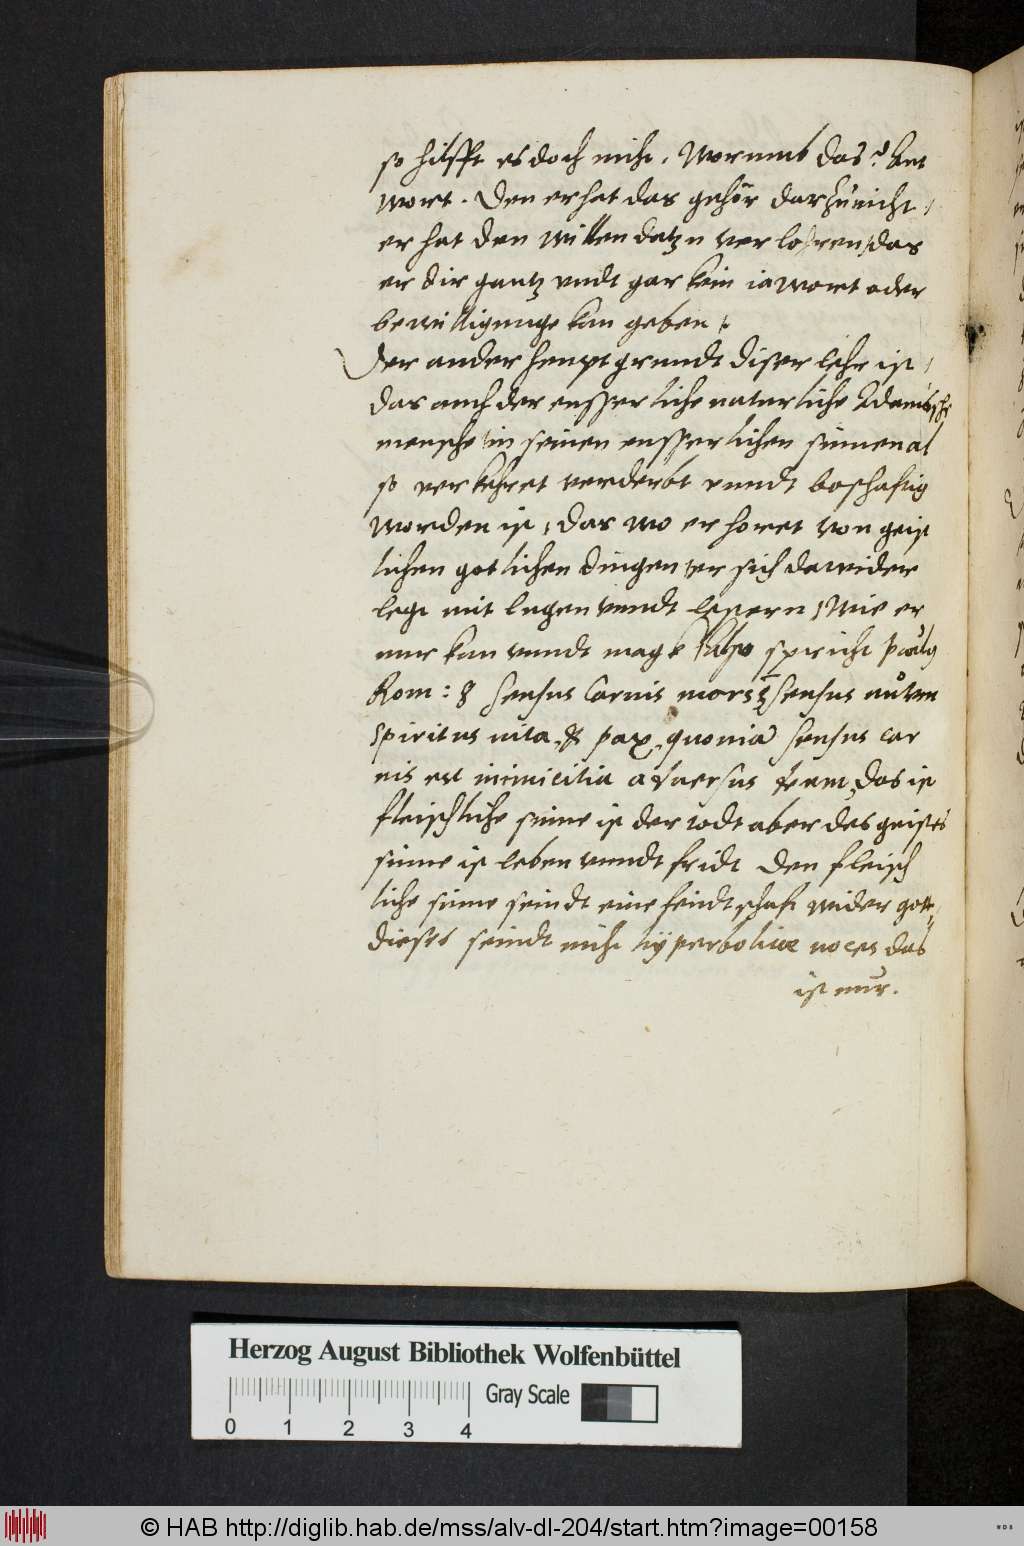 so hilfft es doch nicht, Worumb das? Ant
wort. Den er hat das gehör darzu nicht,
er hat den willen datzu verlohren, das
er dir gantz undt gar kein ia wort oder
bewilligunge kan geben.
Der ander heuptgrundt diser lehr ist,
das auch der eusserliche naturliche Adamische
mensche in seinen eusserlichen sinnen al
so verkehret verderbt unndt boshafftig
worden ist, das wo er horet von geist
lichen gotlichen dingen er sich dawider
legt mit lugen unndt lestern, Wie er
nur kan unndt magk Also spricht paulus
Rom: 8 sensus Carnis mors est sensus autem
spiritus vita & pax, quonia sensus car
nis est inimicitia adversus deum, Das ist
fleischliche sinne ist der todt aber des geistes
sinne ist leben unndt fridt Den fleisch
liche sinne seindt eine feindtschaft wider gott,
dieses seindt nicht hÿperbolicæ voces das
ist nur.
Herzog August Bibliothek Wolfenbüttel
Gray Scale
0 1 2 3 4
© HAB http://diglib.hab.de/mss/alv-dl-204/start.htm?image=00158